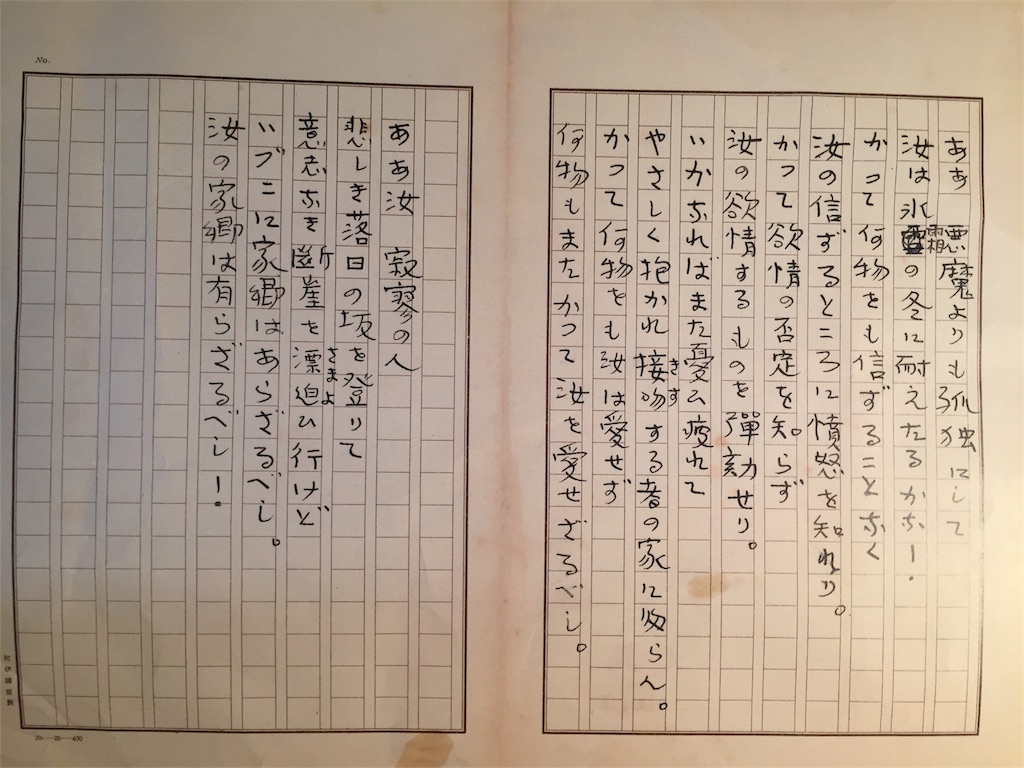 ああ 悪魔よりも孤独にして
汝は氷霜の冬に耐えたるかな!
かって何物をも信ずることなく
汝の信ずるところに憤怒を知れり。
かって欲情の否定を知らず
汝の欲情するものを弾劾せり。
いかなればまた憂ひ疲れて
やさしく抱かれ接吻する者の家に帰らん。
きす
かつて何物をも汝は愛せず
何物もまたかつて汝を愛せざるべし。
ああ汝 寂寥の人
悲しき落日の坂を登りて
意志なき断崖を漂迫ひ行けど
さまよ
いづこに家郷はあらざるべし。
汝の家郷は有らざるべし!
No.
20—20—400
紀伊國屋製